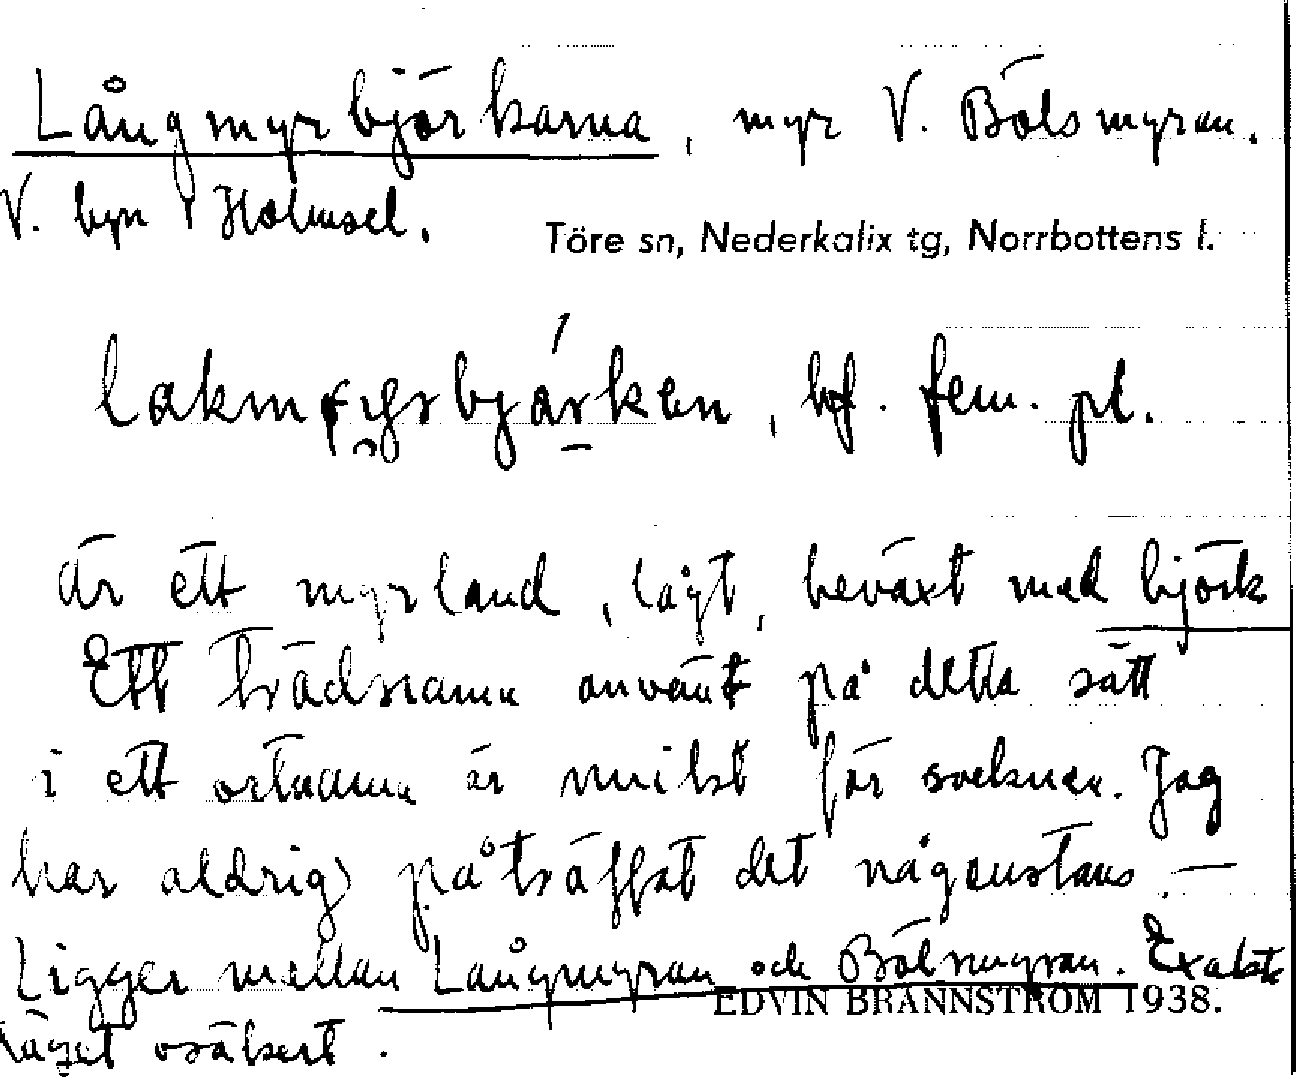 Långmyrbjörkarna, myr V. Bölsmyran.
V. byn Holmsel.
Töre sn, Nederkalix tg, Norrbottens l.
bf. fem. pl.
är ett myrland, lågt, beväxt med björk
Ett trädnamn använt på detta sätt
i ett ortnamn är unikt för socknen. Jag
har aldrig påträffat det någonstans. —
Ligger mellan Långmyran och Bölsmyran. Exakta
läget osäkert.
EDVIN BRÄNNSTRÖM 1938.